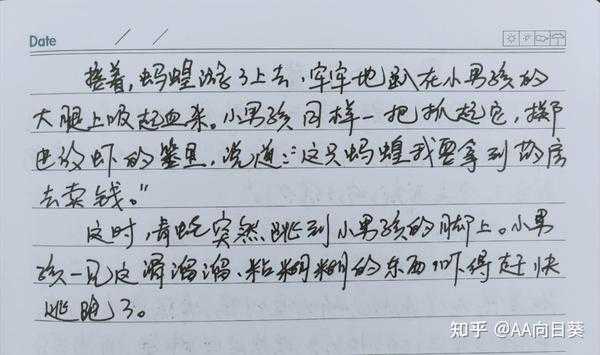 Date / /
接着,蚂蝗游了上去,牢牢地趴在小男孩的
大腿上吸起血来。小男孩同样一把抓起它,掷
进放虾的篮里,说道:"这只蚂蝗我要拿到药房
去卖钱。"
这时,青蛙突然跳到小男孩的脚上。小男
孩一见这滑溜溜、粘糊糊的东西吓得赶快
逃跑了。
知乎 @AA向日葵